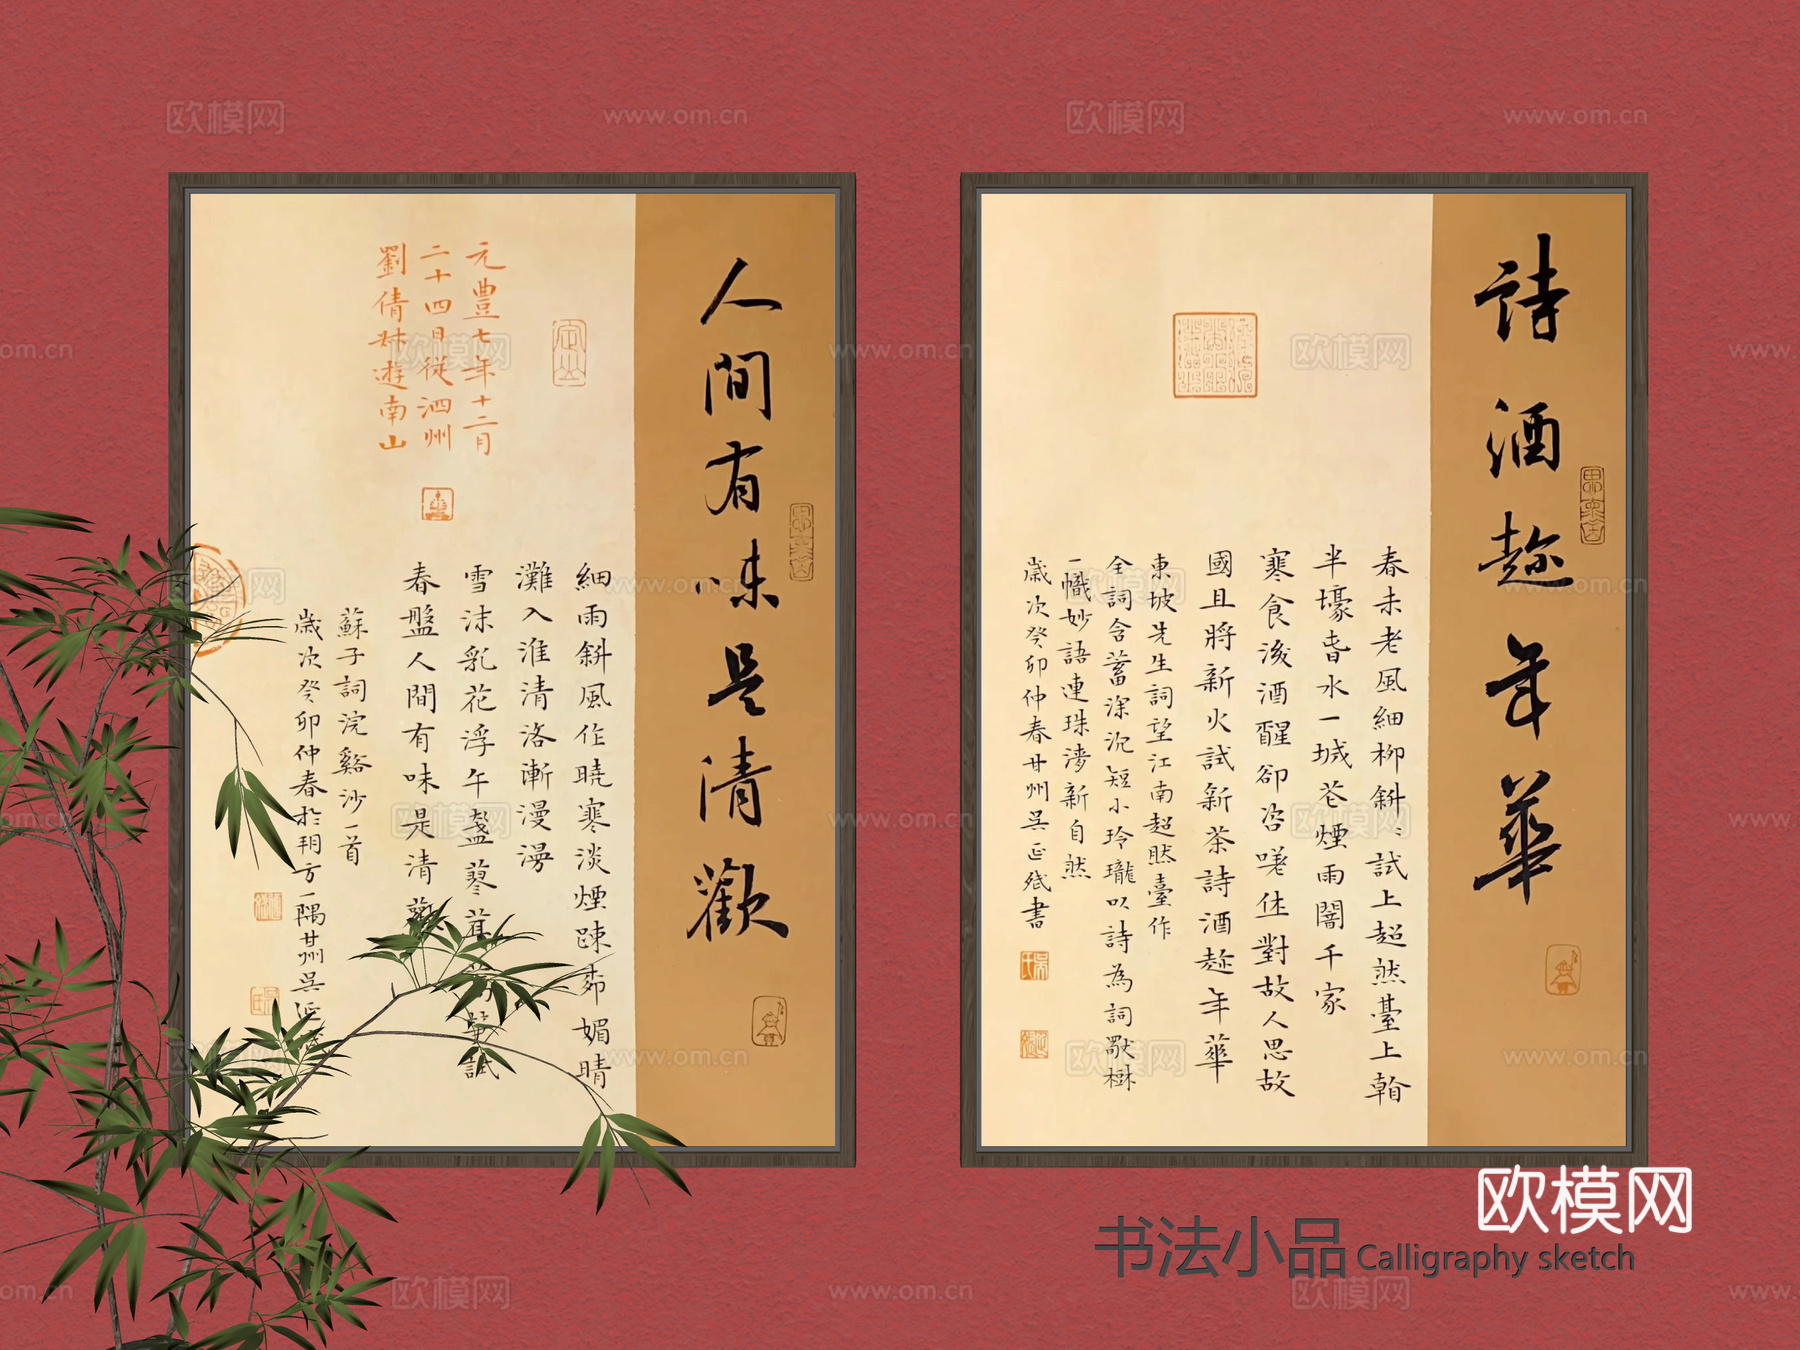 人間有味是清歡
元豊七年十二月
二十四日従泗州
劉倩姝遊南山
細雨斜風作曉寒淡煙疎柳媚晴
灘入淮清洛漸漫漫
雪沫乳花浮午盞蓼茸蒿筍試
春盤人間有味是清歡
蘇子詞浣谿沙一首
歲次癸卯仲春於玥方一隅甘州吳
詩酒趁年華
春未老風細柳斜斜試上超然臺上看
半壕春水一城花煙雨闇千家
寒食後酒醒卻咨嗟休對故人思故
國且將新火試新茶詩酒趁年華
東坡先生詞望江南超然臺作
全詞含蓄深沉短小玲瓏以詩為詞獻楙
一幟妙語連珠清新自然
歲次癸卯仲春甘州吳正斌書
书法小品 Calligraphy sketch
欧模网
www.om.cn